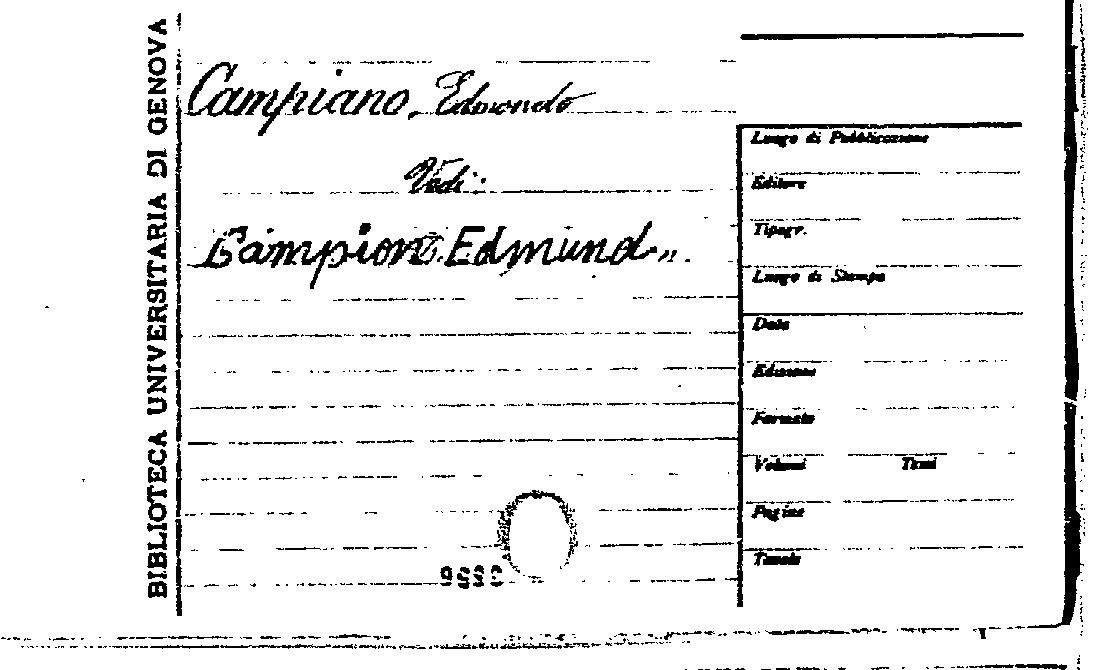 BIBLIOTECA UNIVERSITARIA DI GENOVA
Campiano, Edmondo
Vedi:
Campion Edmund
Luogo di Pubblicazione
Editore
Tipogr.
Luogo di Stampa
Data
Edizione
Formato
Volumi Tomi
Pagine
Tavole